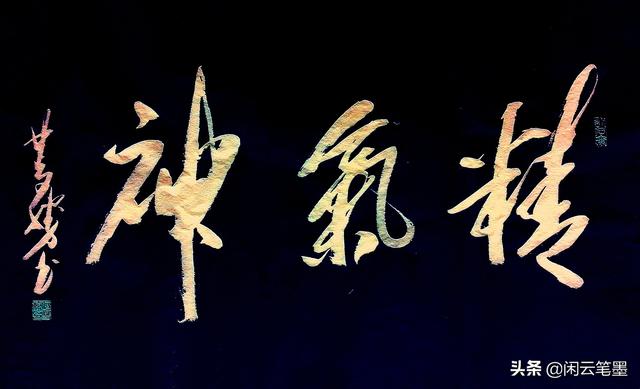 精氣神
头条 @闲云笔墨